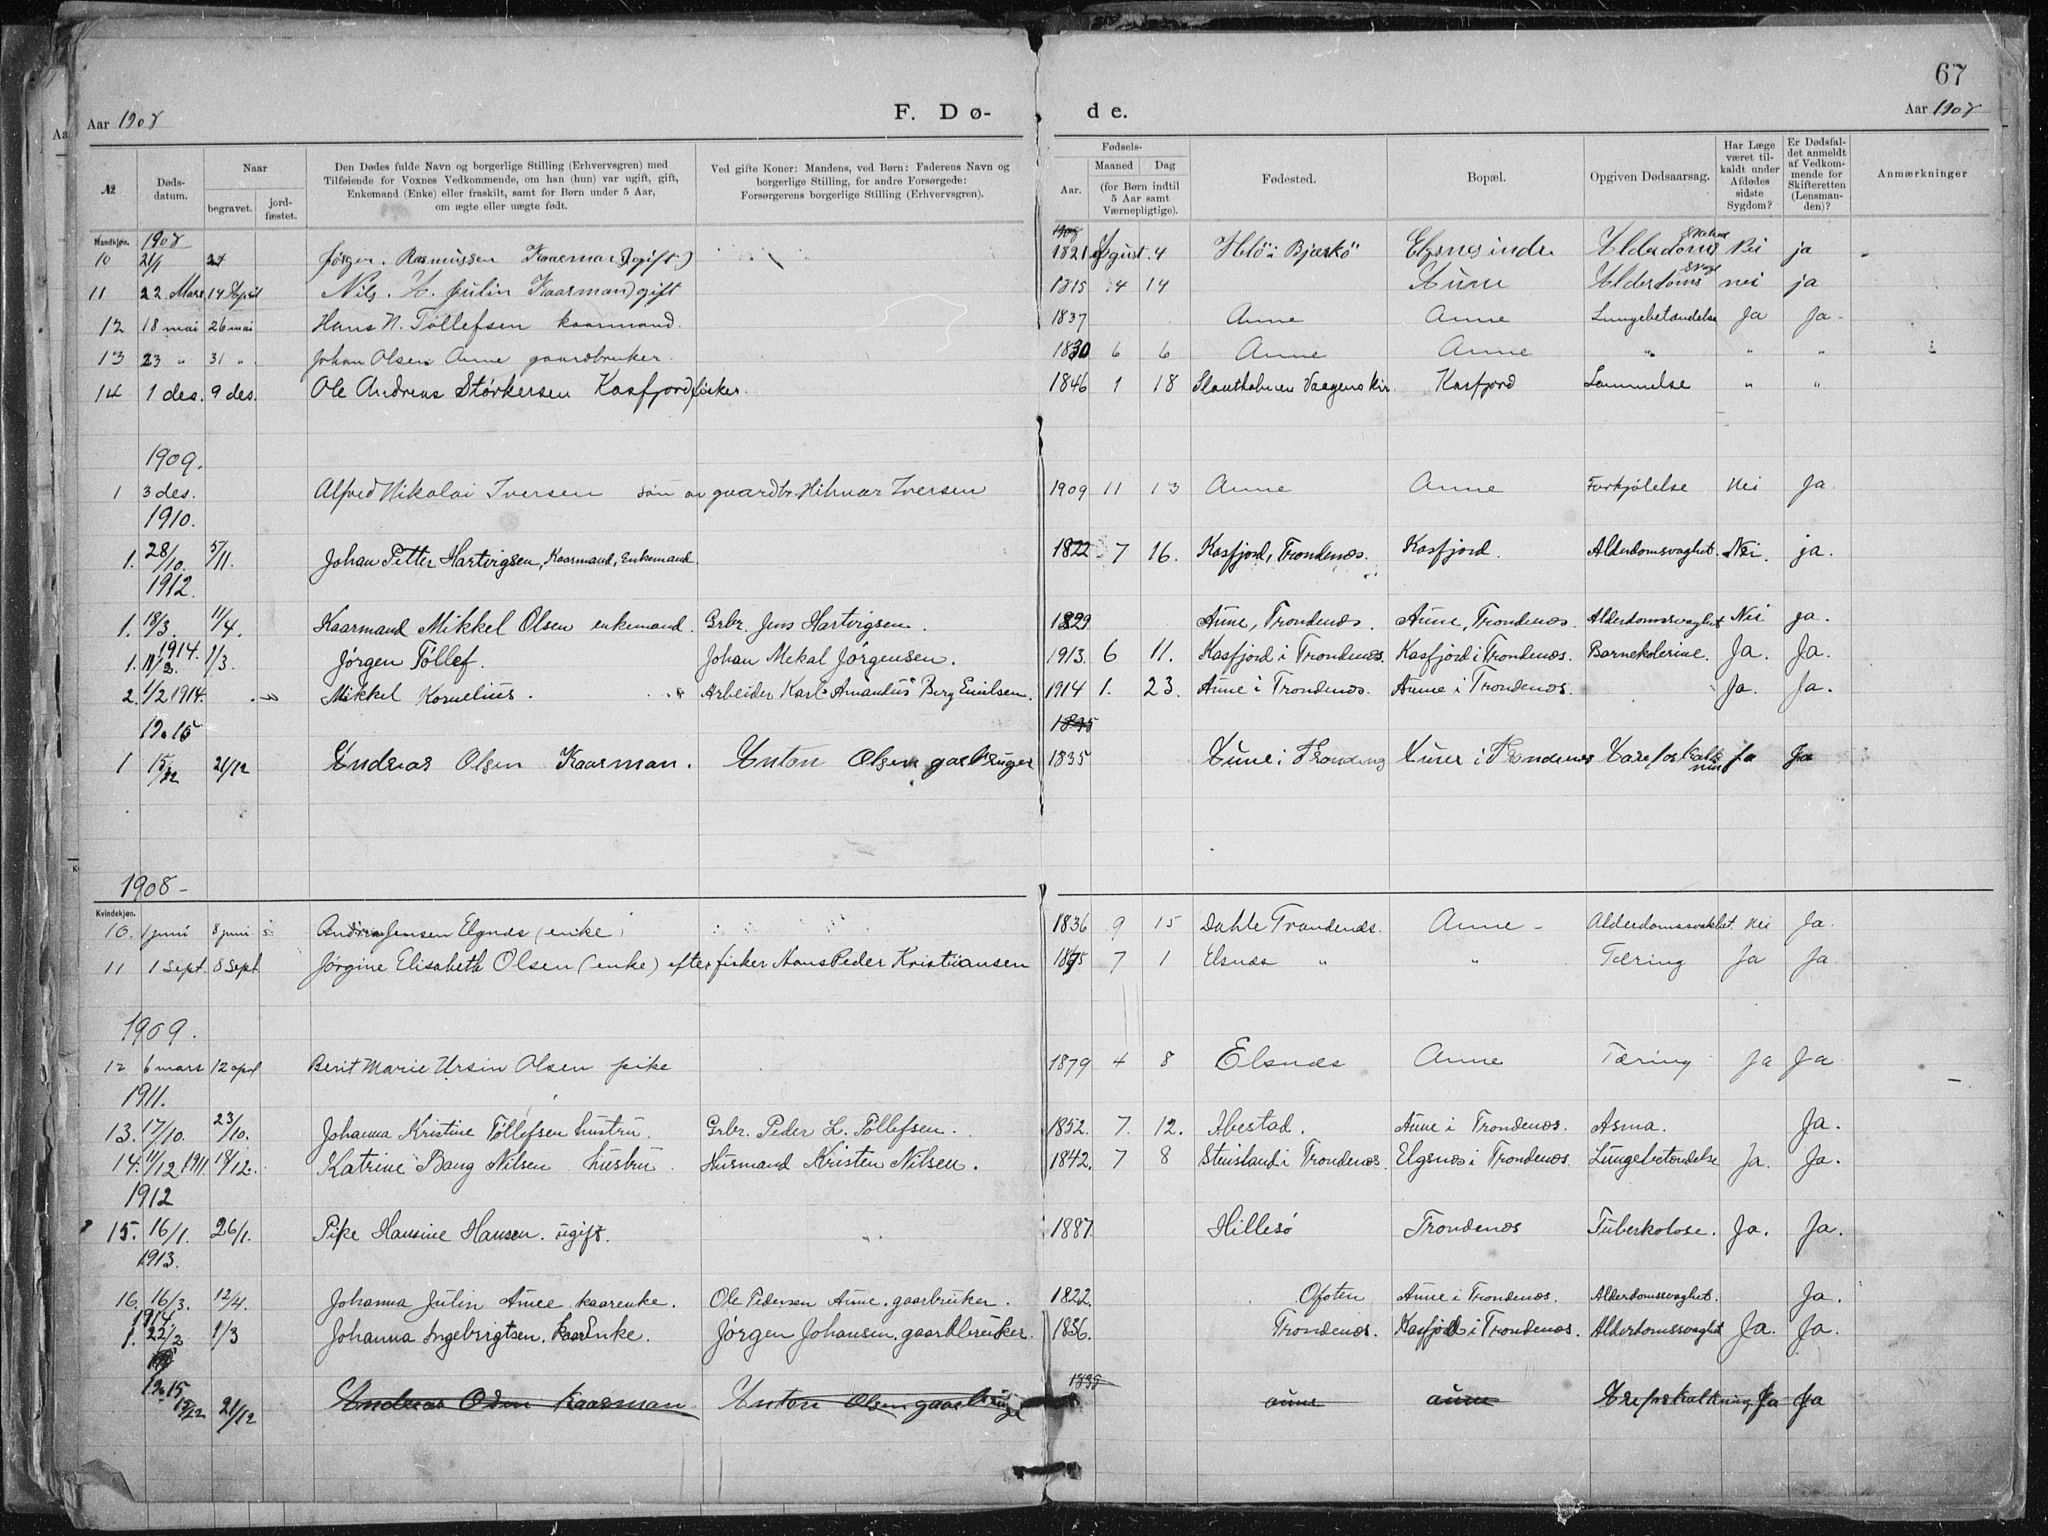 67
Aar 1908 F. Dø- de. Aar 1908
№ Døds-datum. Naar begravet. jord-fæstet. Den Dødes fulde Navn og borgerlige Stilling (Erhvervsgren) med Tilføiende for Voxnes Vedkommende, om han (hun) var ugift, gift, Enkemand (Enke) eller fraskilt, samt for Børn under 5 Aar, om ægte eller uægte født. Ved gifte Koner: Mandens, ved Børn: Faderens Navn og borgerlige Stilling, for andre Forsørgede: Forsørgerens borgerlige Stilling (Erhvervsgren). Fødsels- Aar. Maaned Dag (for Børn indtil 5 Aar samt Værnepligtige). Fødested. Bopæl. Opgiven Dødsaarsag. Har Læge været til-kaldt under Afdødes sidste Sygdom? Er Dødsfal-det anmeldt af Vedkom-mende for Skifteretten (Lensman-den)? Anmærkninger
Mandkjøn. 1908
10 21/1 Jørgen Rasmussen Kaarmand (gift) 1821 4 Helö i Bjarkö Elgsnes indre Alderdoms Nei ja
11 22 Mars 14 April Nils H. Julin Kaarmand gift 1815 4 14 Aune Alderdoms nei ja
12 18 mai 26 mai Hans N. Tøllefsen kaarmand. 1837 Aune Aune Lungebetændelse Ja Ja
13 23 " 31 " Johan Olsen Aune gaardbruker. 1830 6 6 Aune Aune " " "
14 1 des. 9 des. Ole Andreas Størkersen Kasfjord fisker. 1846 1 18 Kasfjord Lammelse " "
1909.
1 3 des. Alfred Nikolai Iversen søn av gaardbr. Hilmar Iversen 1909 11 13 Aune Aune Forkjølelse Nei Ja
1910.
1. 28/10. 5/11. Johan Petter Hartvigsen, Kaarmand, Enkemand. 1822 7 16. Kasfjord, Trondenæs. Kasfjord. Alderdomsvaghet. Nei. ja.
1912.
1. 18/3. 11/4. Kaarmand Mikkel Olsen enkemand. Grbr. Jens Hartvigsen. 1829 Aune, Trondenæs. Aune, Trondenæs. Alderdomssvaghet Nei ja.
1914.
1. 11/2. 1/3 Jørgen Tøllef. Johan Mekal Jørgensen. 1913. 6 11. Kasfjord i Trondenæs. Kasfjord i Trondenæs. Barnekolerine. Ja. Ja.
2. 1/2 1914. Mikkel Kornelius. Arbeider Karl Amandus Berg Emilsen. 1914 1. 23. Aune i Trondenæs. Aune i Trondenæs. Ja. Ja.
1915 1835
1 15/12 21/12 Andreas Olsen Kaarman. Anton Olsen gaarbruger 1835 Aune i Trondenæs Aune i Trondenæs Aareforkalkning Ja Ja
1908 -
Kvindekjøn.
10. 1 juni 8 juni Andrea Jensen Elgnæs (enke) 1836 9 15 Dahle Trondenæs. Aune - Alderdomssvakhet Nei Ja.
11 1 Sept. 8 Sept Jørgine Elisabeth Olsen (enke) efter fisker Hans Peder Kristiansen 1865 7 1 Elsnæs " " Tæring Ja Ja
1909.
12 6 mars 12 apl Berit Marie Ursin Olsen pike 1879 4 8 Elsnæs Aune Tæring Ja Ja
1911.
13. 17/10. 23/10. Johanna Kristine Tøllefsen hustru. Grbr. Peder L. Tøllefsen. 1852. 7. 12. Ibestad. Aune i Trondenæs. Asma. Ja.
14. 11/12 1911. 18/12. Katrine Bang Nilsen hustru. Husmand Kristen Nilsen. 1842. 7 8 Steinsland i Trondenæs. Elgsnæs i Trondenæs. Lungebetændelse Ja. Ja.
1912
15. 16/1. 26/1. Pike Hansine Hansen. ugift. 1887. Hillesø Trondenæs Tuberkolose. Ja. Ja.
1913.
16. 16/3. 12/4. Johanna Julin Aune kaarenke. Ole Pedersen Aune. gaarbruker. 1822. Ofoten Aune i Trondenæs. Alderdomssvaghet. Ja.
1914.
1. 22/2 1/3 Johanna Ingebrigtsen, kaarEnke. Jørgen Johansen, gaardbruker. 1836. Trondenæs. Kasfjord i Trondenæs. Alderdomssvaghet Ja. Ja.
1915
15/12 21/12 Andreas Olsen Kaarman Anton Olsen gaarbruge 1835 aune aune Areforkalkning Ja Ja